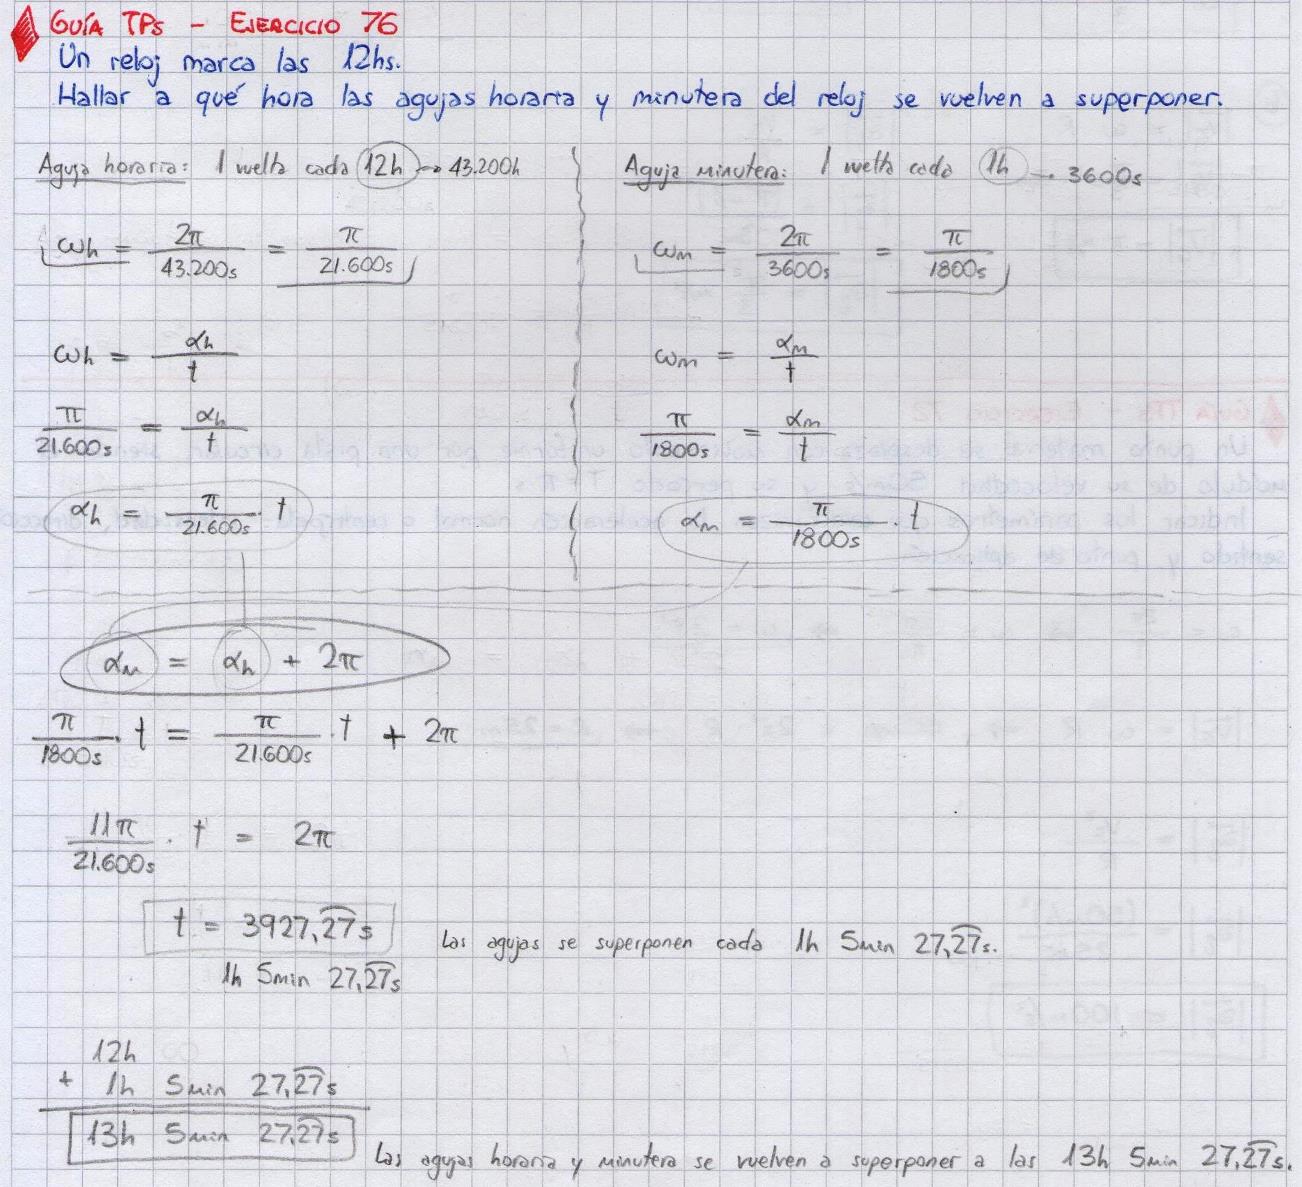 GUÍA TPs - EJERCICIO 76
Un reloj marca las 12hs.
Hallar a qué hora las agujas horaria y minutera del reloj se vuelven a superponer.
Aguja horaria: 1 vuelta cada 12h → 43.200h
ωh = 2π/43.200s = π/21.600s
ωh = αh/t
π/21.600s = αh/t
αh = π/21.600s · t
Aguja minutera: 1 vuelta cada 1h → 3600s
ωm = 2π/3600s = π/1800s
ωm = αm/t
π/1800s = αm/t
αm = π/1800s · t
αm = αh + 2π
π/1800s · t = π/21.600s · t + 2π
11π/21.600s · t = 2π
t = 3927,27s
1h 5min 27,27s
Las agujas se superponen cada 1h 5min 27,27s.
12h
+ 1h 5min 27,27s
13h 5min 27,27s
Las agujas horaria y minutera se vuelven a superponer a las 13h 5min 27,27s.